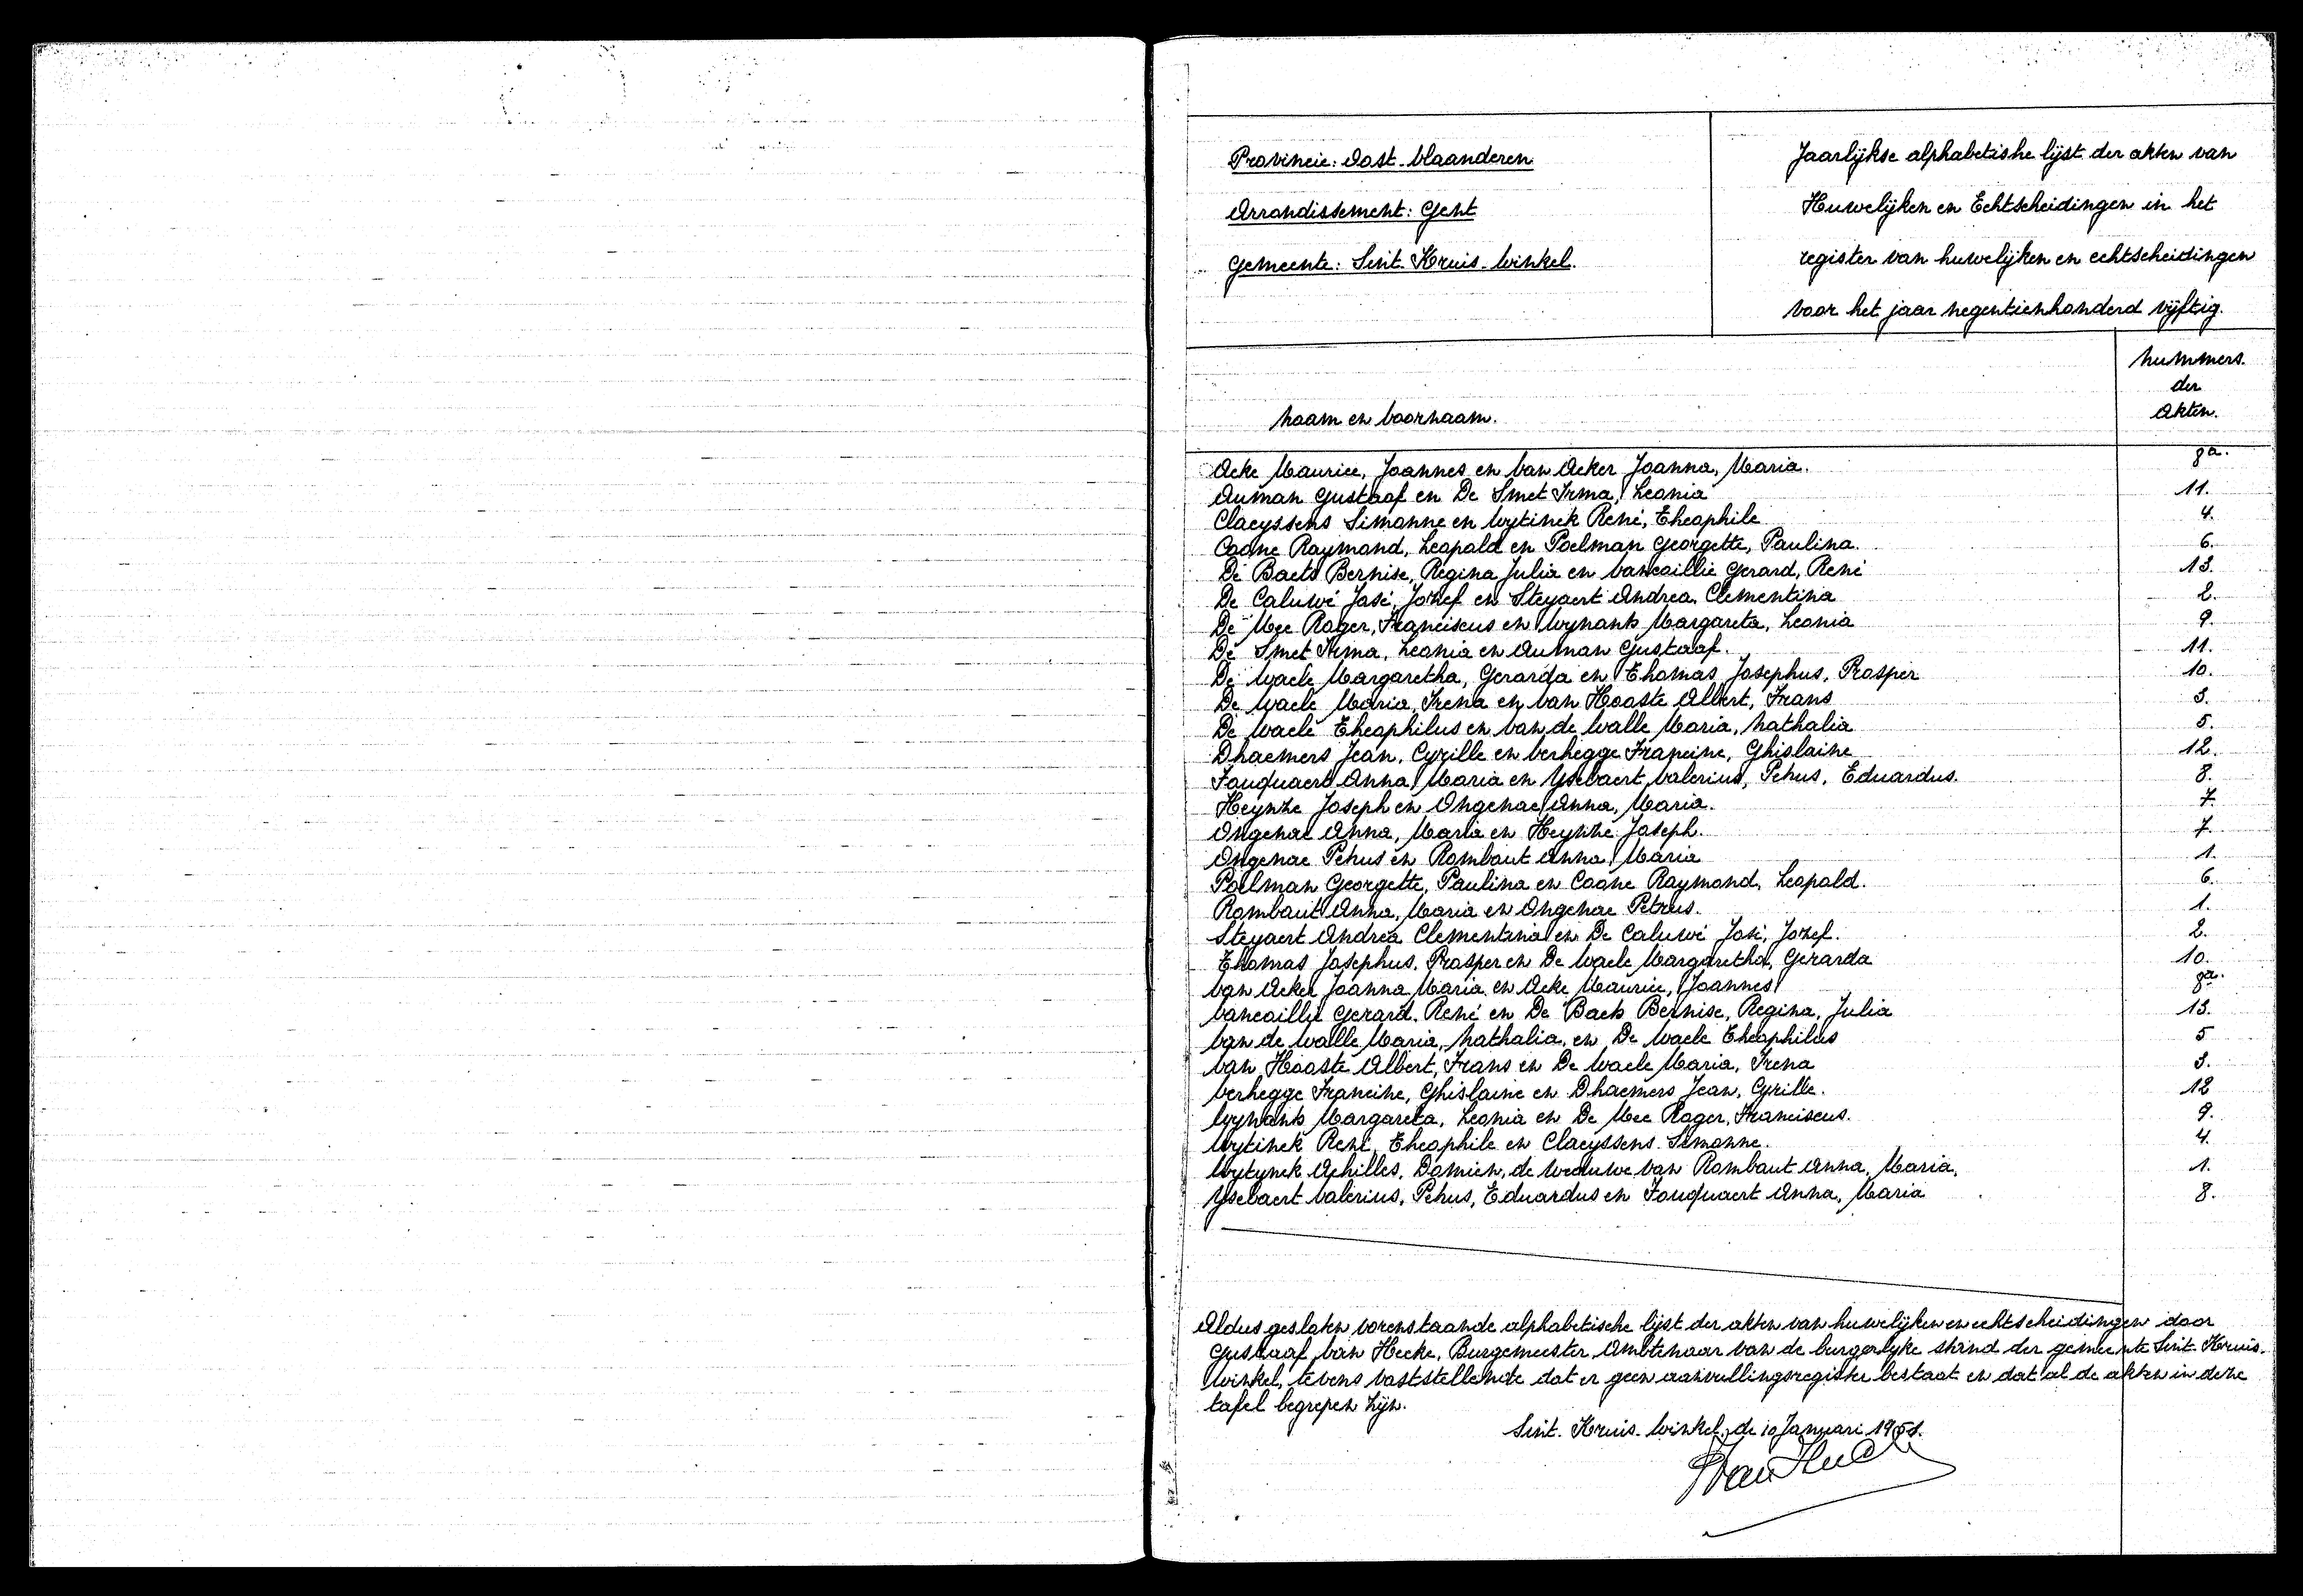 Provincie: Oost-Vlaanderen
Arrondissement: Gent
Gemeente: Sint-Kruis-Winkel.
Jaarlijkse alphabetishe lijst der akten van
Huwelijken en Echtscheidingen in het
register van huwelijken en echtscheidingen
voor het jaar negentienhonderd vijftig.
Naam en Voornaam.
Nummers.
der
Akten.
Acke Maurice, Joannes en Van Acker Joanna, Maria. 8a.
Auman Gustaaf en De Smet Irma, Leonia 11.
Claeyssens Simonne en Wytinck René, Theophile 4.
Coone Raymond, Leopold en Poelman Georgette, Paulina. 6.
De Baets Bernise, Regina Julia en Vancaillie Gerard, René 13.
De Caluwé José, Jozef en Steyaert Andrea, Clementina 2.
De Mee Roger, Franciscus en Wynants Margareta, Leonia 9.
De Smet Irma, Leonia en Auman Gustaaf. 11.
De Waele Margaretha, Gerarda en Thomas Josephus, Prosper 10.
De Waele Maria, Irena en Van Hooste Albert, Frans 3.
De Waele Theophilus en Van de Walle Maria, Nathalia 5.
Dhaemers Jean, Cyrille en Verhegge Francine, Ghislaine 12.
Fouquaert Anna, Maria en Ysebaert Valerius, Petrus, Eduardus. 8.
Heynze Joseph en Ongenae Anna, Maria. 7.
Ongenae Anna, Maria en Heynze Joseph. 7.
Ongenae Petrus en Rombaut Anna, Maria 1.
Poelman Georgette, Paulina en Coone Raymond, Leopold. 6.
Rombaut Anna, Maria en Ongenae Petrus. 1.
Steyaert Andrea Clementina en De Caluwé José, Jozef. 2.
Thomas Josephus, Prosper en De Waele Margaretha, Gerarda 10.
Van Acker Joanna Maria en Acke Maurice, Joannes 8a.
Vancaillie Gerard, René en De Baets Bernise, Regina, Julia 13.
Van de Walle Maria, Nathalia, en De Waele Theophilus 5
Van Hooste Albert, Frans en De Waele Maria, Irena 3.
Verhegge Francine, Ghislaine en Dhaemers Jean, Cyrille. 12
Wynants Margareta, Leonia en De Mee Roger, Franciscus. 9.
Wytinck René, Theophile en Claeyssens Simonne. 4.
Wytynck Achilles, Domien, de weduwe van Rombaut Anna, Maria. 1.
Ysebaert Valerius, Petrus, Eduardus en Fouquaert Anna, Maria 8.
Aldus gesloten vorenstaande alphabetische lijst der akten van huwelijken en echtscheidingen door
Gustaaf Van Hecke, Burgemeester Ambtenaar van de burgerlyke stand der gemeente Sint-Kruis-
Winkel, tevens vaststellende dat er geen aanvullingsregister bestaat en dat al de akten in deze
tafel begrepen zijn.
Sint-Kruis-Winkel, de 10 Januari 1951.